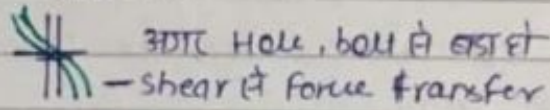 अगर Hole, bolt से बड़ा हो
- shear से force transfer